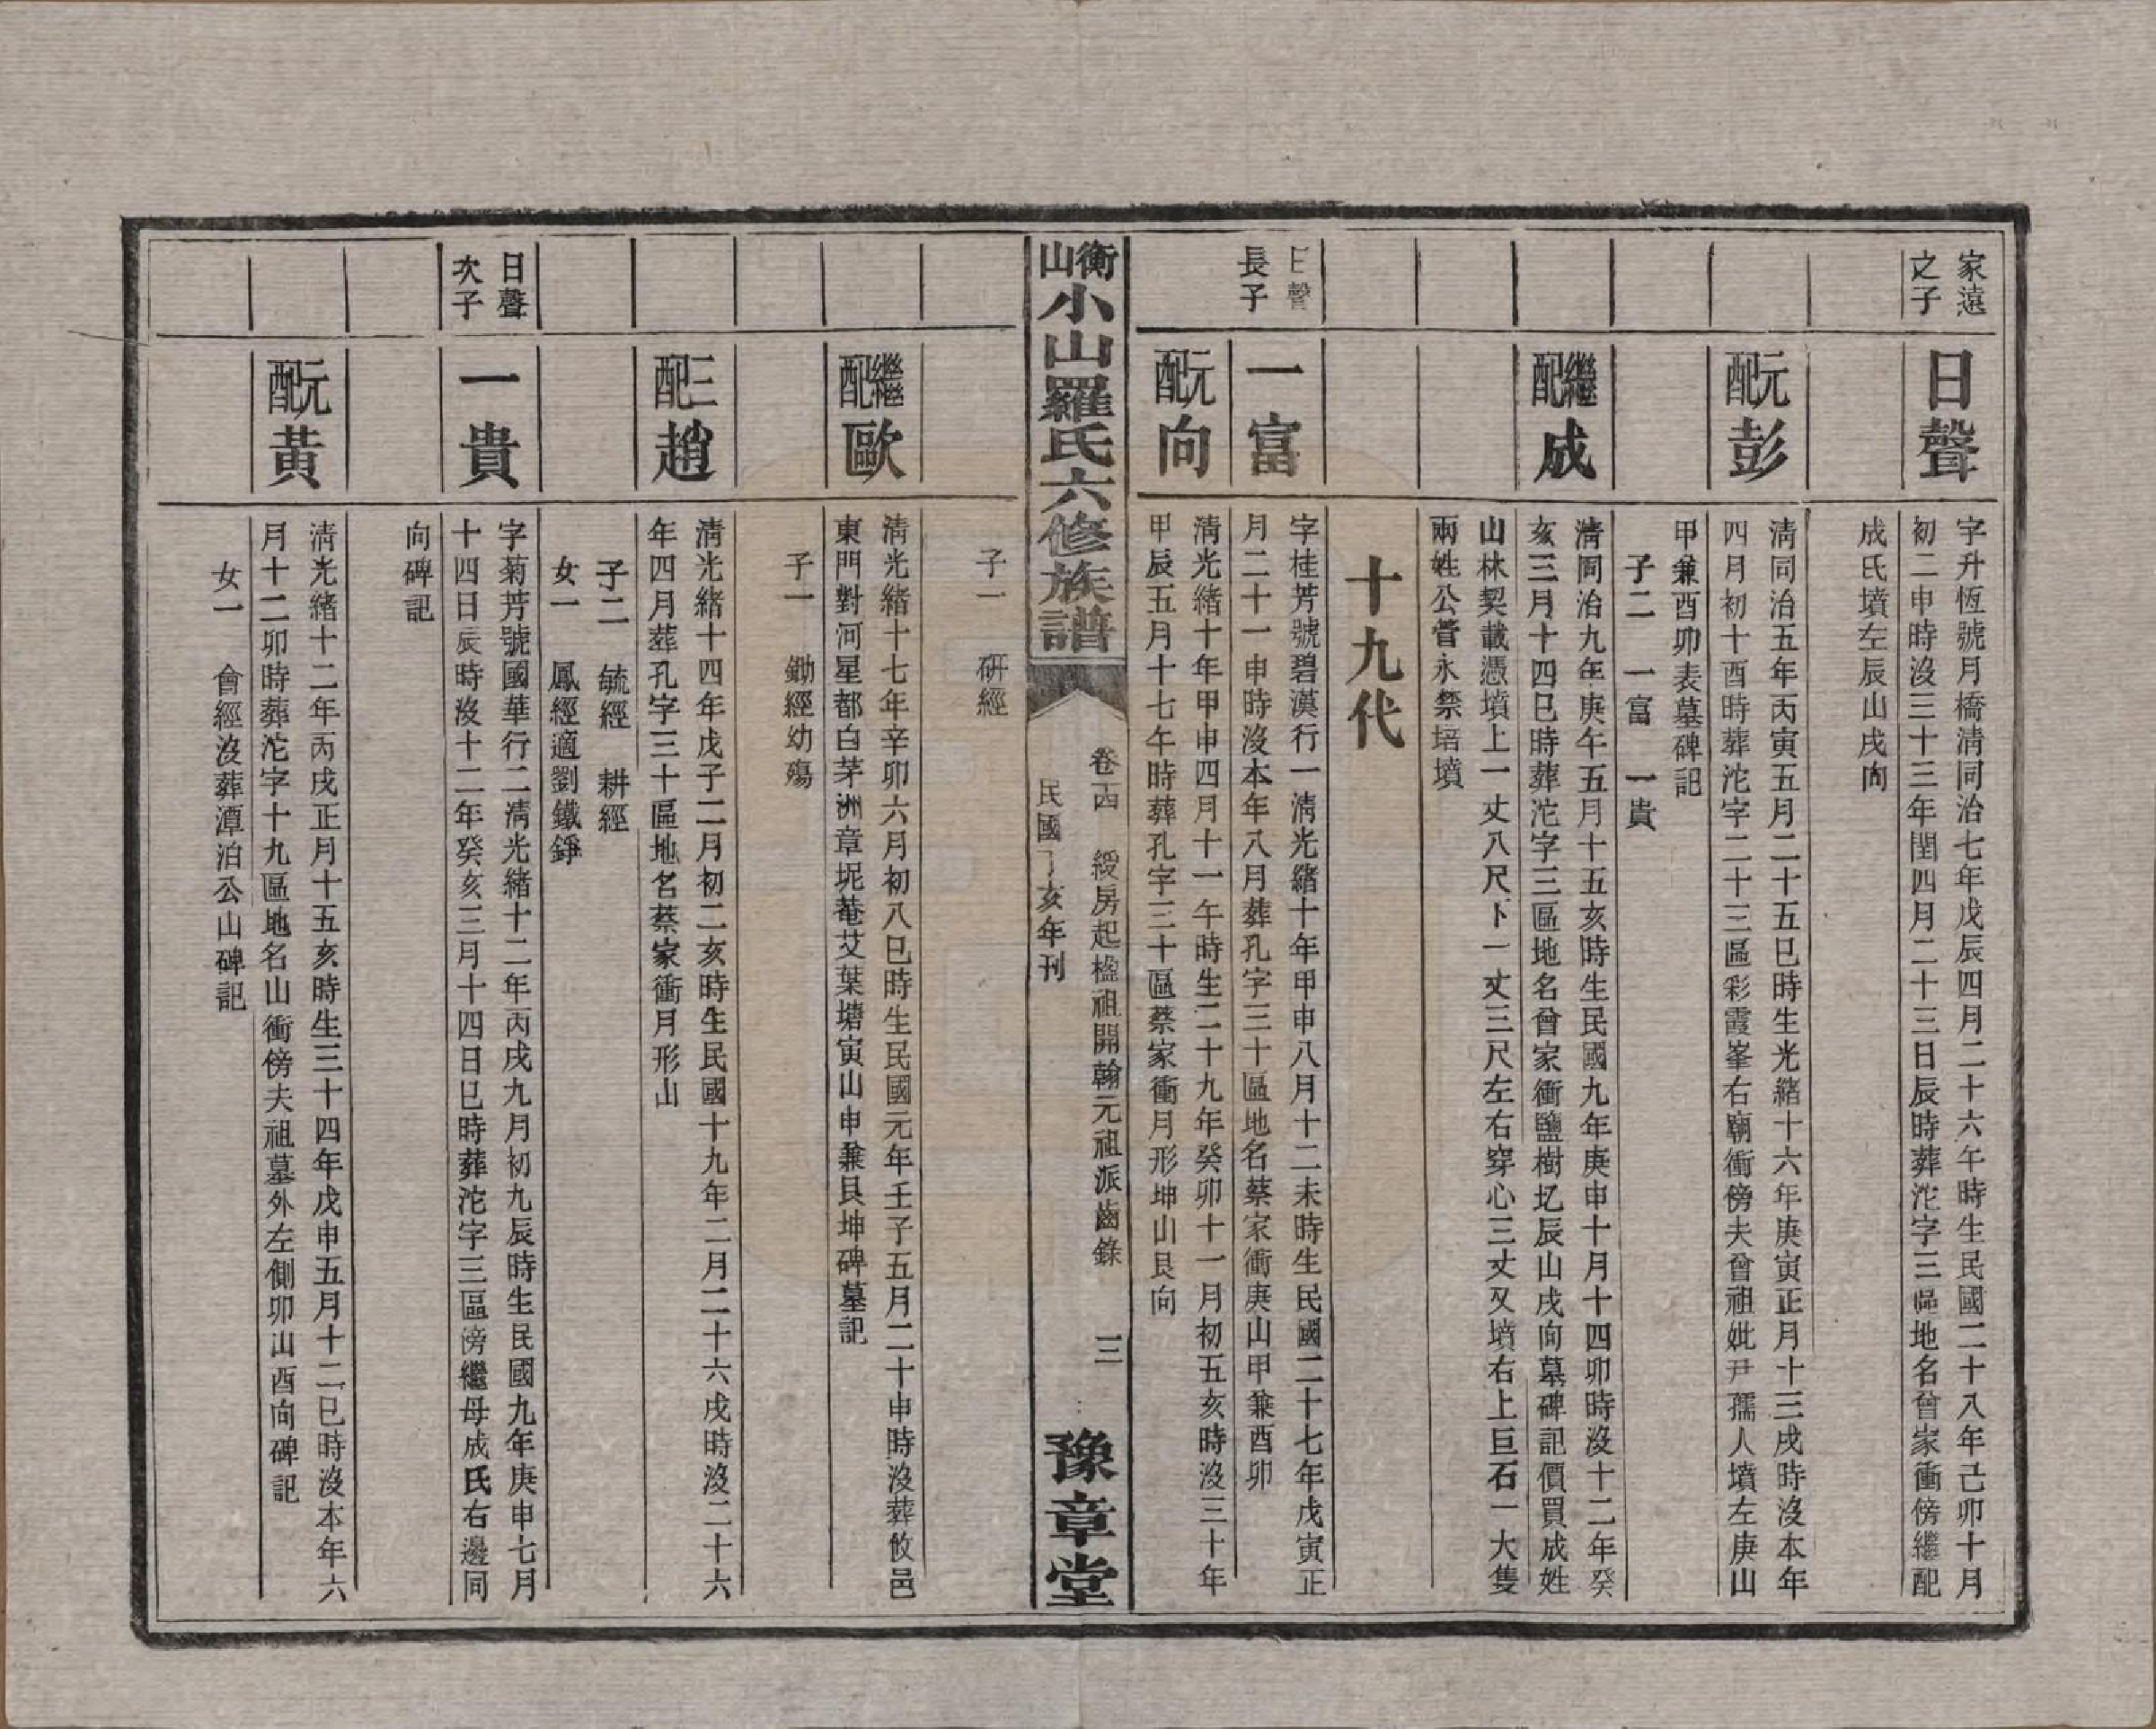 家遠
之子
日聲
字升恆號月橋清同治七年戊辰四月二十六午時生民國二十八年己卯十月
初二申時沒三十三年閏四月二十三日辰時葬沱字三區地名曾家衝傍繼配
成氏墳左辰山戌向
元配彭
清同治五年丙寅五月二十五巳時生光緒十六年庚寅正月十三戌時沒本年
四月初十酉時葬沱字二十三區彩霞峯右廟衝傍夫曾祖妣尹孺人墳左庚山
甲兼酉卯表墓碑記
子二 一富 一貴
繼配成
清同治九年庚午五月十五亥時生民國九年庚申十月十四卯時沒十二年癸
亥三月十四巳時葬沱字三區地名曾家衝鹽樹圫辰山戌向墓碑記價買成姓
山林契載憑墳上一丈八尺下一丈三尺左右穿心三丈又墳右上巨石一大隻
兩姓公管永禁培墳
十九代
日聲
長子
一富
字桂芳號碧漢行一清光緒十年甲申八月十二未時生民國二十七年戊寅正
月二十一申時沒本年八月葬孔字三十區地名蔡家衝庚山甲兼酉卯
元配向
清光緒十年甲申四月十一午時生二十九年癸卯十一月初五亥時沒三十年
甲辰五月十七午時葬孔字三十區蔡家衝月形坤山艮向
衡山小山羅氏六修族譜
卷四 綬房起楹祖開翰元祖派齒錄 三
民國 亥年刊
豫章堂
子一 硏經
繼配歐
清光緒十七年辛卯六月初八巳時生民國元年壬子五月二十申時沒葬攸邑
東門對河星都白茅洲章坭菴艾葉塘寅山申兼艮坤碑墓記
子一 鋤經幼殤
三配趙
清光緒十四年戊子二月初二亥時生民國十九年二月二十六戌時沒二十六
年四月葬孔字三十區地名蔡家衝月形山
子二 毓經 耕經
女一 鳳經適劉鐵錚
日聲
次子
一貴
字菊芳號國華行二清光緒十二年丙戌九月初九辰時生民國九年庚申七月
十四日辰時沒十二年癸亥三月十四日巳時葬沱字三區傍繼母成氏右邊同
向碑記
元配黃
清光緒十二年丙戌正月十五亥時生三十四年戊申五月十二巳時沒本年六
月十二卯時葬沱字十九區地名山衝傍夫祖墓外左側卯山酉向碑記
女一 會經沒葬潭泊公山碑記